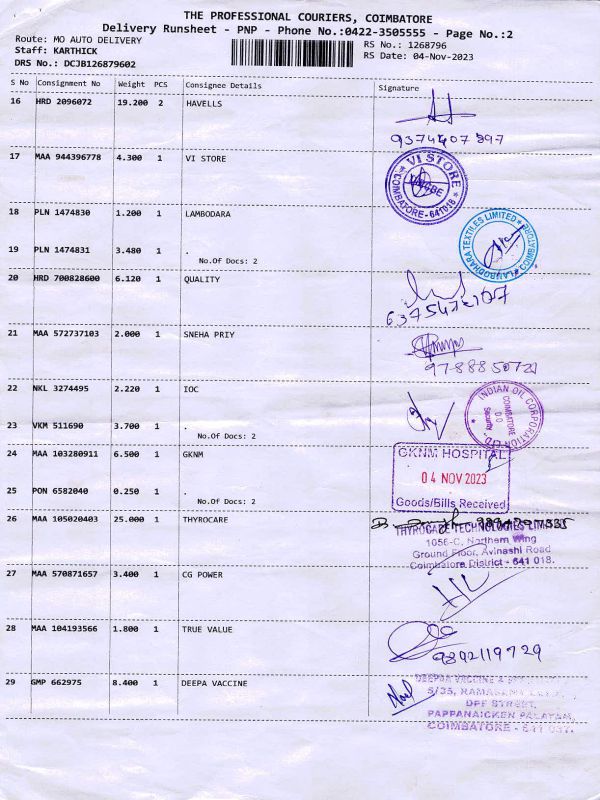 THE PROFESSIONAL COURIERS, COIMBATORE
Delivery Runsheet - PNP - Phone No.:0422-3505555 - Page No.:2
Route: MO AUTO DELIVERY
RS No.: 1268796
Staff: KARTHICK
RS Date: 04-Nov-2023
DRS No.: DCJB126879602
S No Consignment No Weight PCS Consignee Details Signature
16 HRD 2096072 19.200 2 HAVELLS
17 MAA 944396778 4.300 1 VI STORE
VI STORE
COIMBATORE-641018
18 PLN 1474830 1.200 1 LAMBODARA
LAMBODHARA TEXTILES LIMITED
COIMBATORE
19 PLN 1474831 3.480 1 .
No.Of Docs: 2
20 HRD 700828600 6.120 1 QUALITY
21 MAA 572737103 2.000 1 SNEHA PRIY
22 NKL 3274495 2.220 1 IOC
INDIAN OIL CORPORATION LTD
COIMBATORE
Security
23 VKM 511690 3.700 1 .
No.Of Docs: 2
24 MAA 103280911 6.500 1 GKNM
GKNM HOSPITAL
04 NOV 2023
Goods/Bills Received
25 PON 6582040 0.250 1 .
No.Of Docs: 2
26 MAA 105020403 25.000 1 THYROCARE
THYROCARE TECHNOLOGIES LIMITED
105E-C, Northern Wing
Ground Floor, Avinashi Road
Coimbatore District - 641 018.
27 MAA 570871657 3.400 1 CG POWER
28 MAA 104193566 1.800 1 TRUE VALUE
9892119729
29 GMP 662975 8.400 1 DEEPA VACCINE
DEEPAA VACCINE &
5/35,
DPF STREET,
PAPPANAICKEN PALAYAM,
COIMBATORE - 641 037.